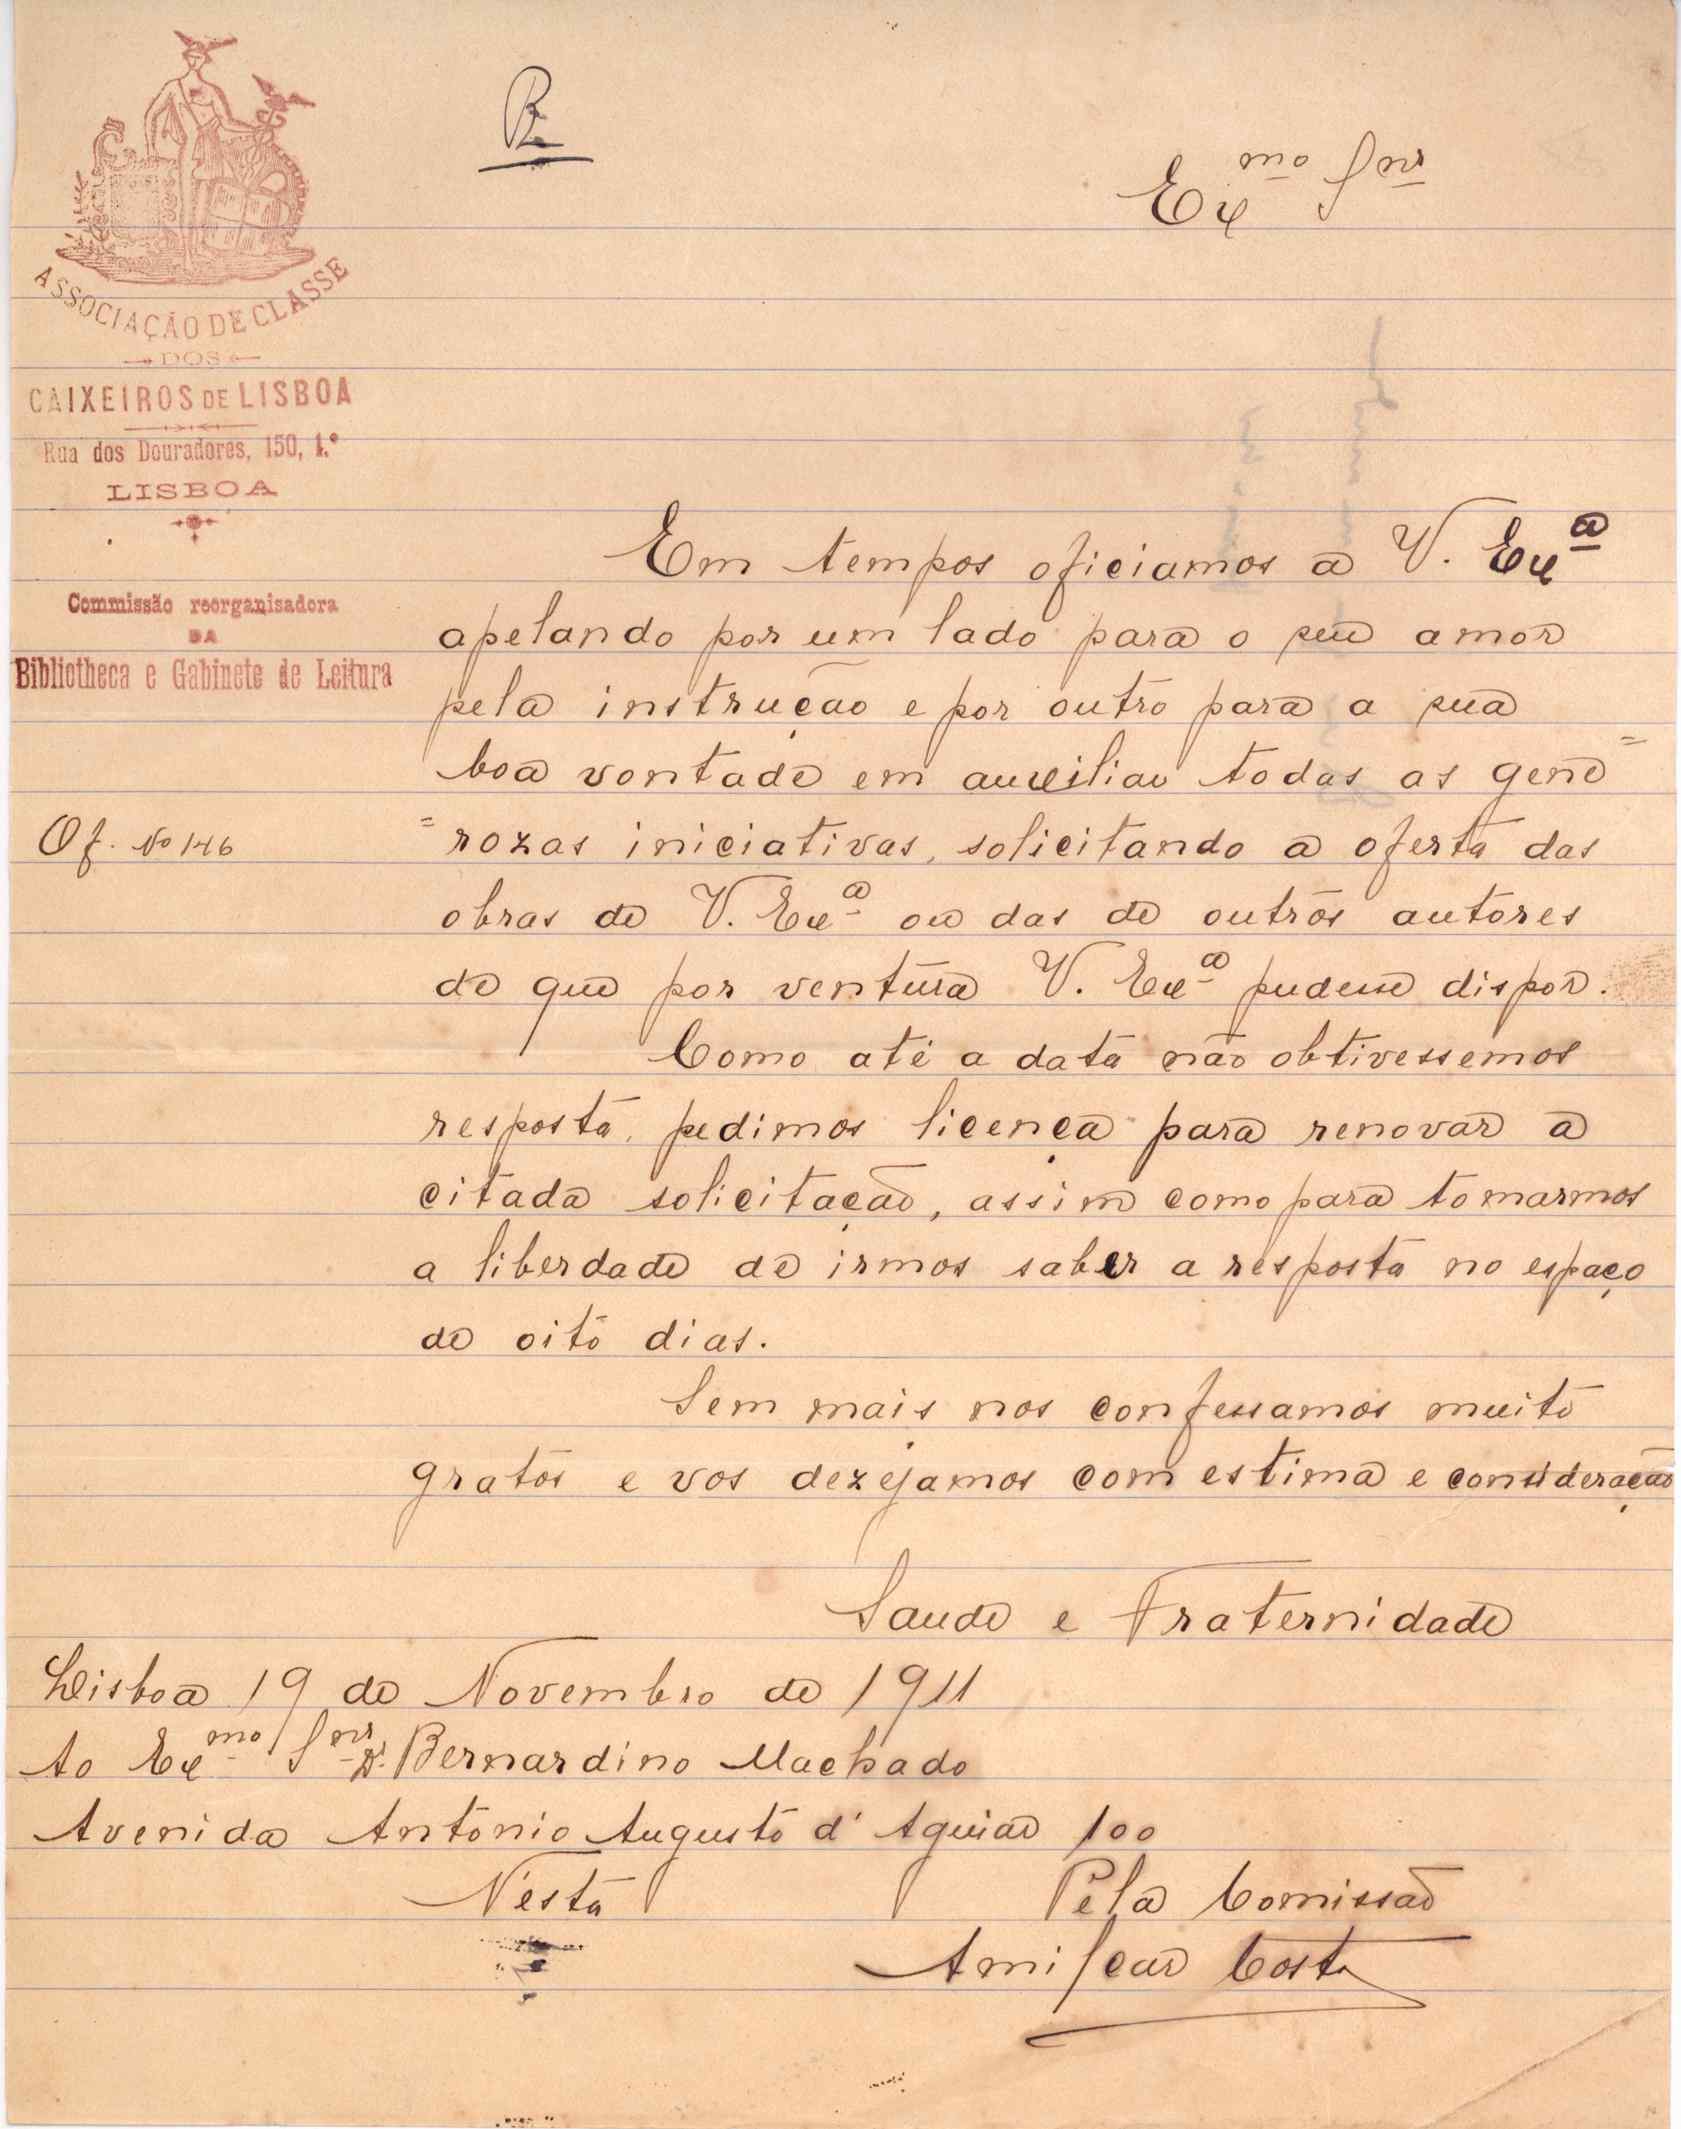 R
Exmo Snr
ASSOCIAÇÃO DE CLASSE
DOS
CAIXEIROS DE LISBOA
Rua dos Douradores, 150, 1.º
LISBOA
Commissão reorganisadora
DA
Bibliotheca e Gabinete de Leitura
Of. No 146
Em tempos oficiamos a V. Exª
apelando por um lado para o seu amor
pela instrução e por outro para a sua
boa vontade em auxiliar todas as gene=
=rozas iniciativas, solicitando a oferta das
obras de V. Exª ou das de outros autores
de que por ventura V. Exª pudesse dispor.
Como até a data não obtivessemos
resposta, pedimos licença para renovar a
citada solicitação, assim como para tomarmos
a liberdade de irmos saber a resposta no espaço
de oito dias.
Sem mais nos confessamos muito
gratos e vos dezejamos com estima e consideração
Saude e Fraternidade
Lisboa 19 de Novembro de 1911
Ao Exmo Snr Dr. Bernardino Machado
Avenida Antonio Augusto d'Aguiar 100
N'esta
Pela Comissão
Amilcar Costa